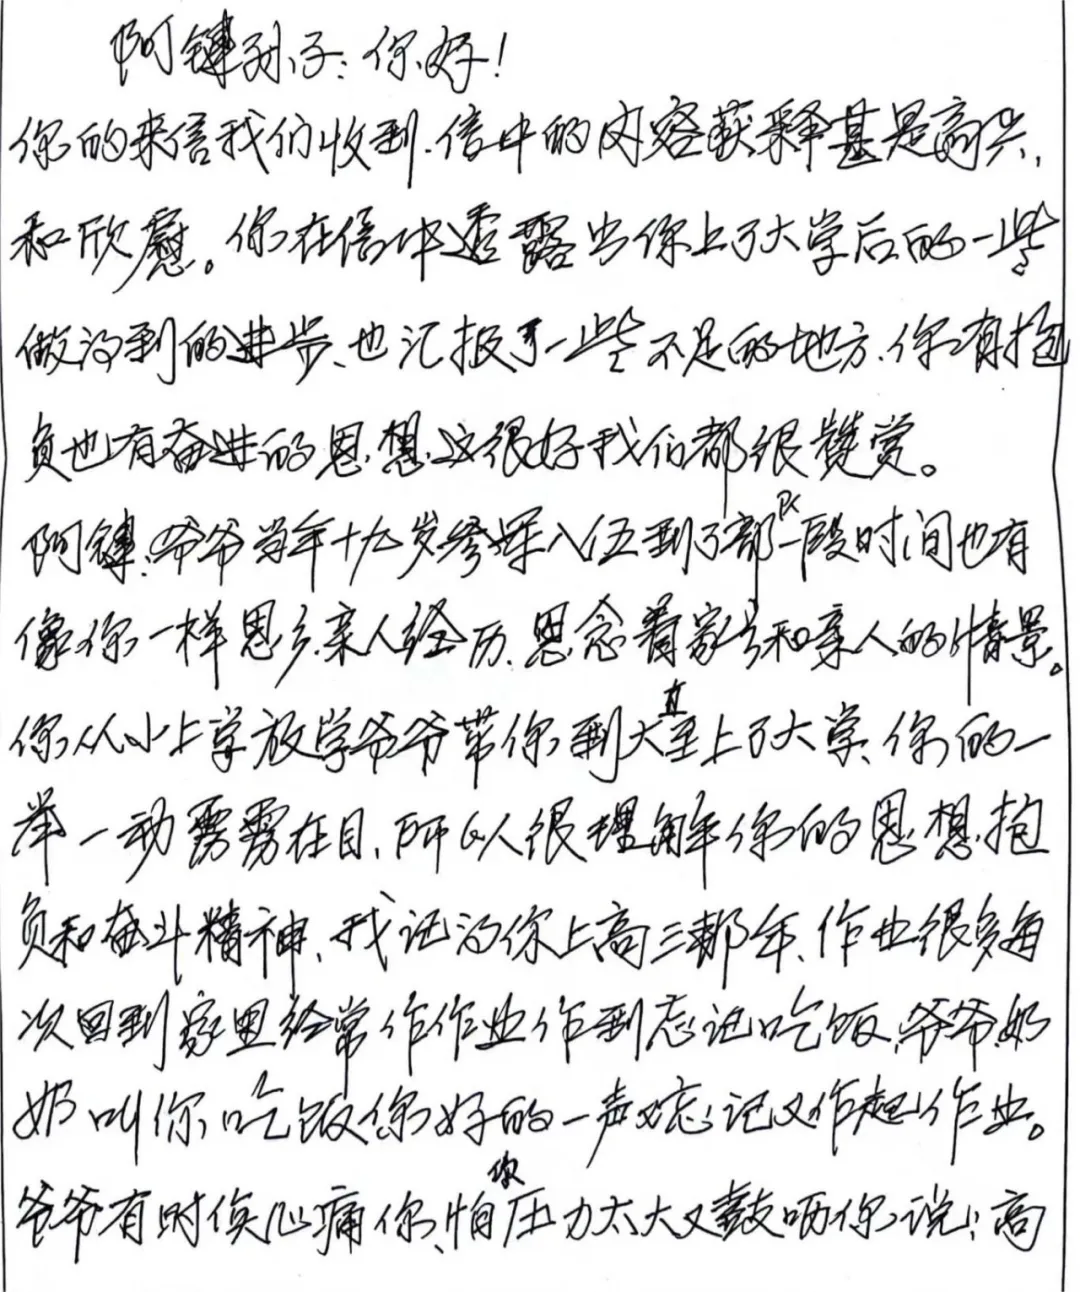 阿键孙子：你好！
你的来信我们收到.信中的内容获释甚是高兴,
和欣慰。你在信中透露出你上了大学后的一些
做得到的进步、也汇报了一些不足的地方.你有抱
负也有奋进的思想.这很好我们都很赞赏。
阿键.爷爷当年十九岁参军入伍到了部队一段时间也有
像你一样思乡亲人经历.思念着家乡和亲人的情景。
你从小上学放学爷爷带你到大直至上了大学、你的一
举一动雳雳在目.所以很理解你的思想抱
负和奋斗精神、我记得你上高三那年、作业很多每
次回到家里经常作作业作到忘记吃饭.爷爷.奶
奶叫你吃饭你好的一声又忘记又作起作业。
爷爷有时候心痛你、怕你压力太大又鼓哂你说：高